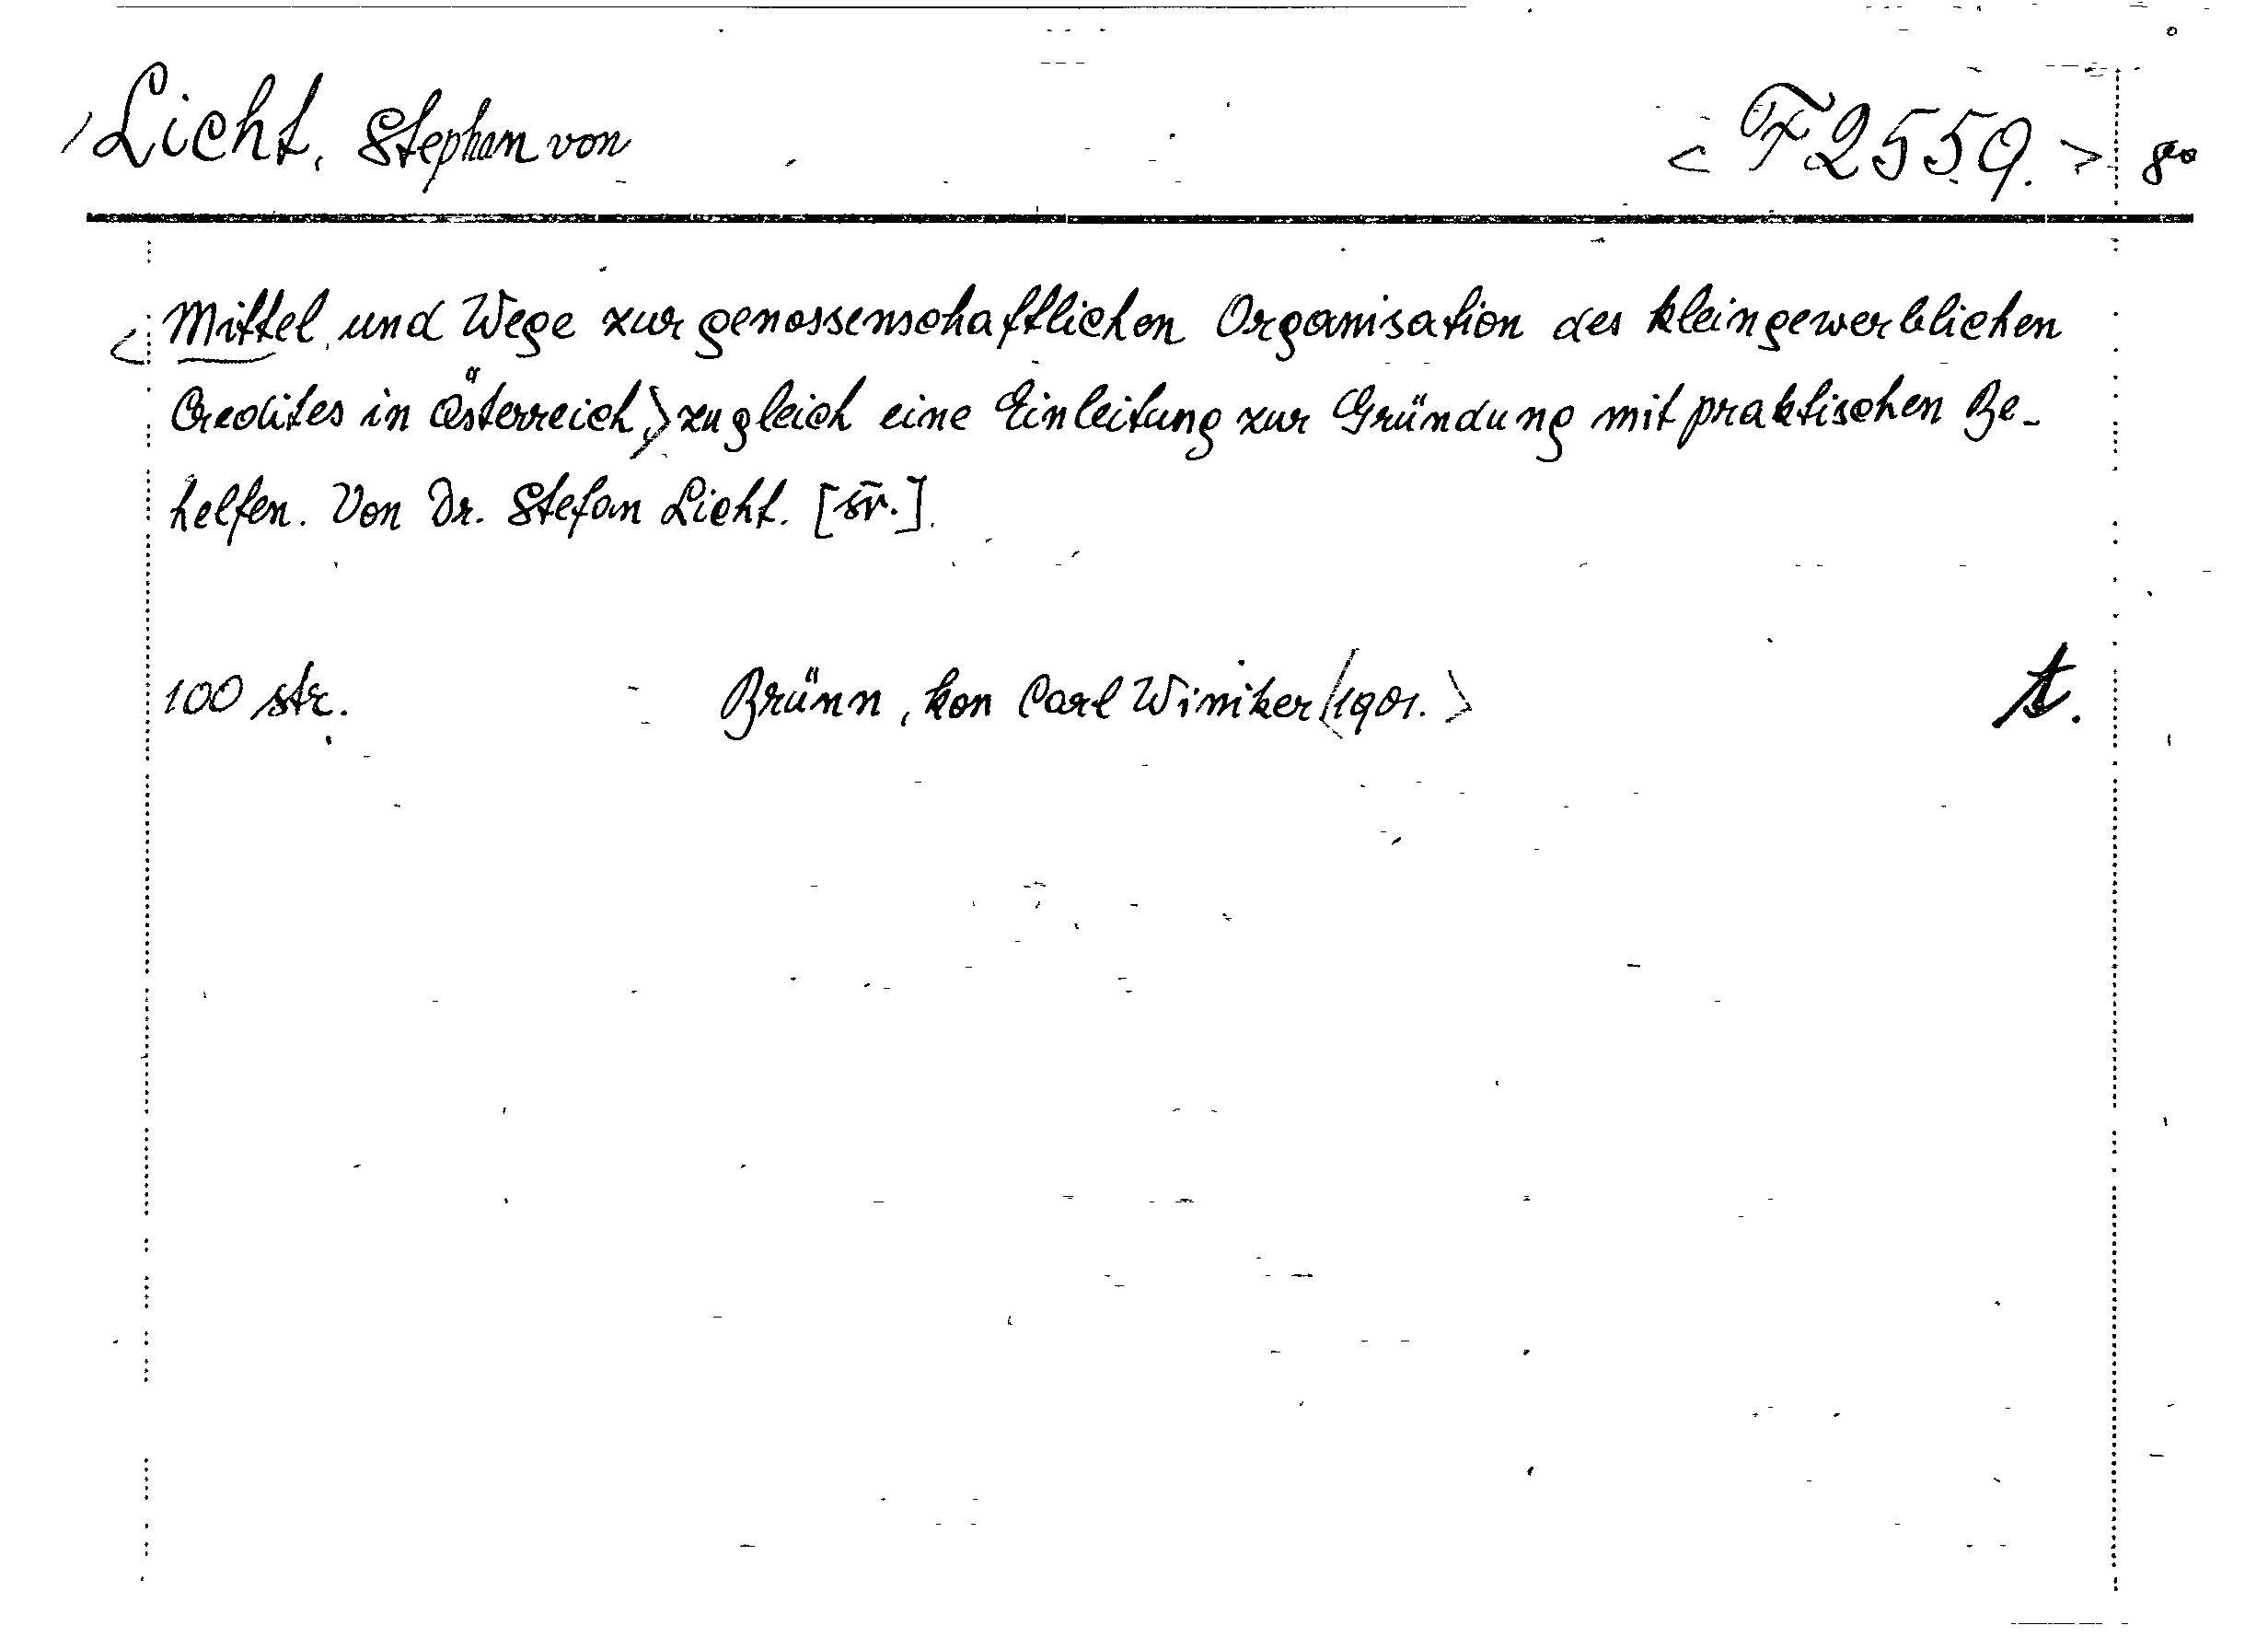 Licht, Stephan von <F 2559.> 8°
<Mittel und Wege zur genossenschaftlichen Organisation des kleingewerblichen
Credites in Österreich,> zugleich eine Einleitung zur Gründung mit praktischen Be-
helfen. Von Dr. Stefan Licht. [sv.].
100 str. Brünn, kon Carl Winiker <1901.> t.